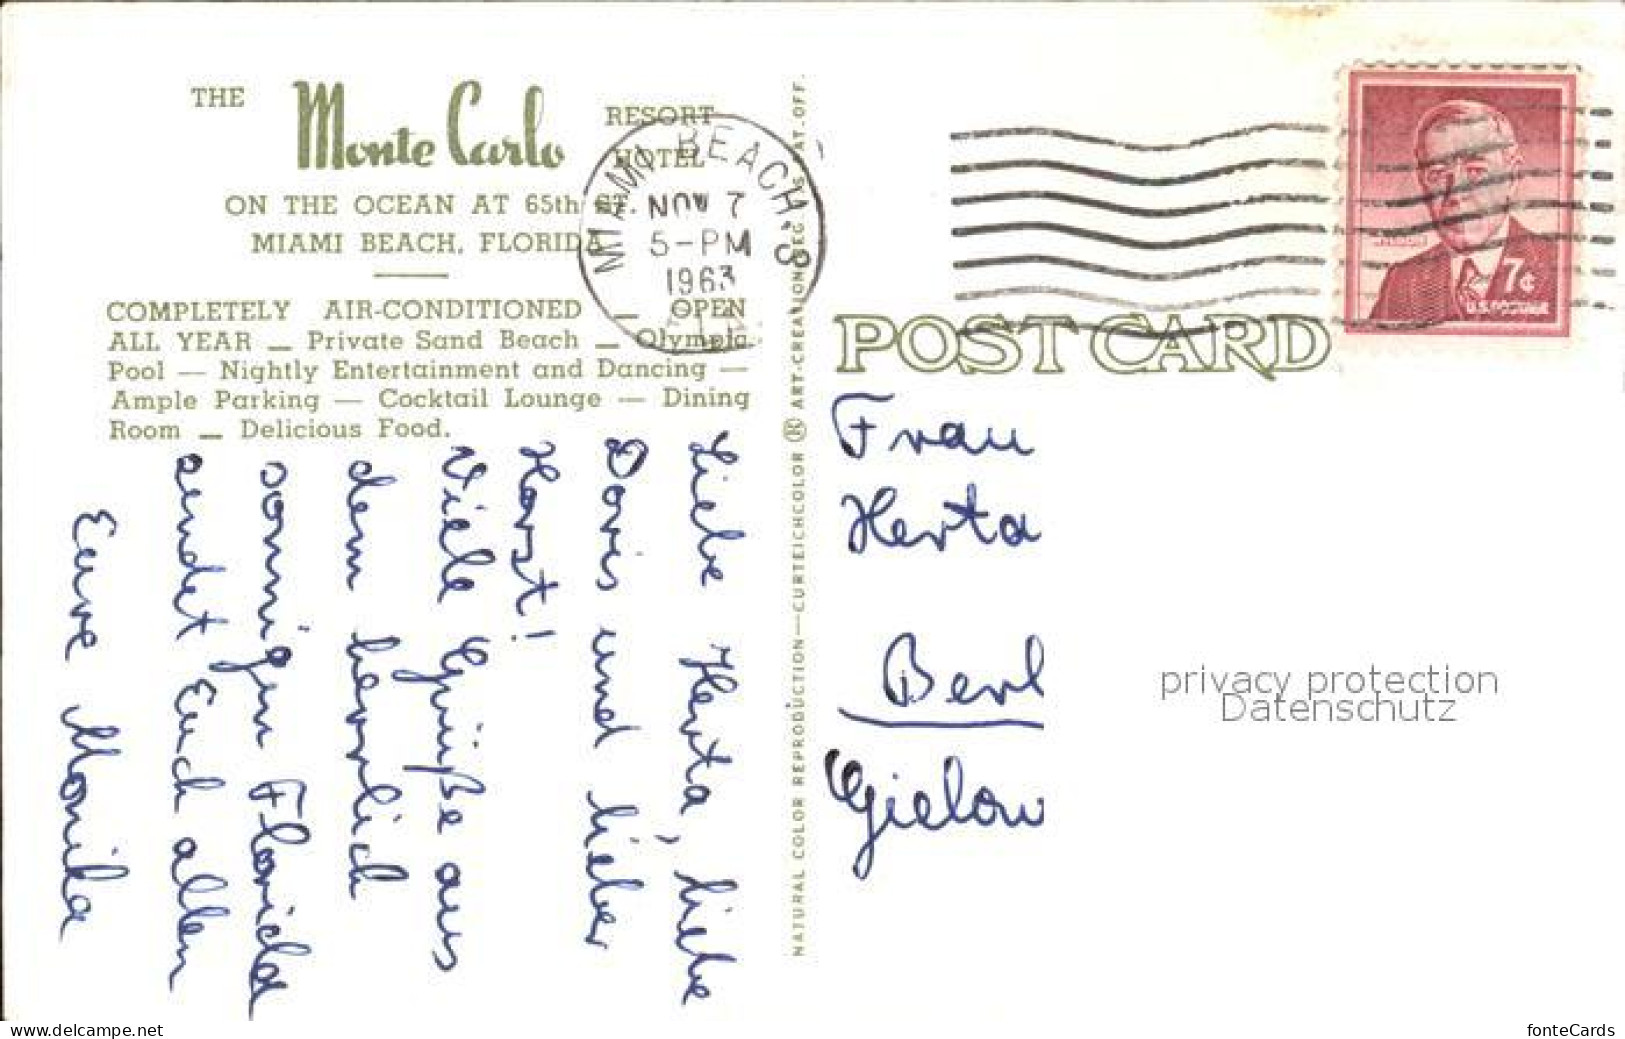 THE Monte Carlo RESORT HOTEL
ON THE OCEAN AT 65th ST.
MIAMI BEACH, FLORIDA
COMPLETELY AIR-CONDITIONED — OPEN
ALL YEAR — Private Sand Beach — Olympic
Pool — Nightly Entertainment and Dancing —
Ample Parking — Cocktail Lounge — Dining
Room — Delicious Food.
Liebe Herta, liebe
Doris und lieber
Horst!
Viele Grüße aus
dem herrlich
sonnigen Florida
sendet Euch allen
Eure Monika
NATURAL COLOR REPRODUCTION—CURTEICHCOLOR ® ART-CREATION REG. U.S. PAT. OFF.
MIAMI BEACH
NOV 7
5-PM
1963
FLA
7¢
U.S. POSTAGE
POST CARD
Frau
Herta
Berl
Gielow
privacy protection
Datenschutz
www.delcampe.net
fonteCards